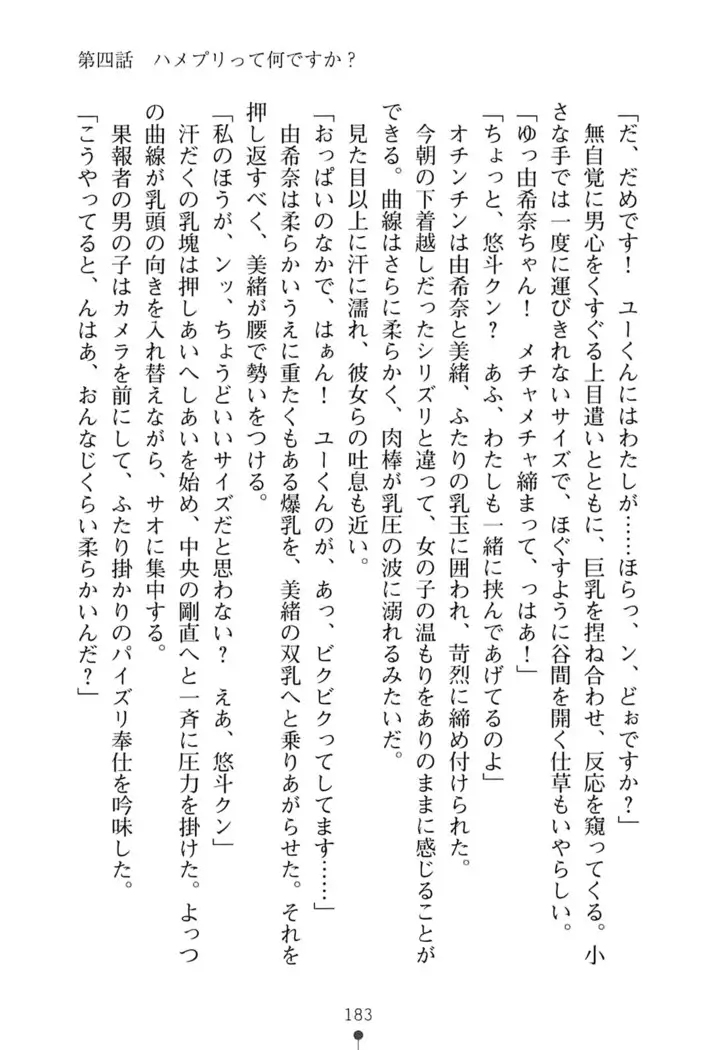 第四話　ハメプリって何ですか？
「だ、だめです！　ユーくんにはわたしが……ほらっ、ン、どぉですか？」
無自覚に男心をくすぐる上目遣いとともに、巨乳を捏ね合わせ、反応を窺ってくる。小
さな手では一度に運びきれないサイズで、ほぐすように谷間を開く仕草もいやらしい。
「ゆっ由希奈ちゃん！　メチャメチャ締まって、っはぁ！」
「ちょっと、悠斗クン？　あふ、わたしも一緒に挟んであげてるのよ」
オチンチンは由希奈と美緒、ふたりの乳玉に囲われ、苛烈に締め付けられた。
今朝の下着越しだったシリズリと違って、女の子の温もりをありのままに感じることが
できる。曲線はさらに柔らかく、肉棒が乳圧の波に溺れるみたいだ。
見た目以上に汗に濡れ、彼女らの吐息も近い。
「おっぱいのなかで、はぁん！　ユーくんのが、あっ、ビクビクってしてます……」
由希奈は柔らかいうえに重たくもある爆乳を、美緒の双乳へと乗りあがらせた。それを
押し返すべく、美緒が腰で勢いをつける。
「私のほうが、ンッ、ちょうどいいサイズだと思わない？　えあ、悠斗クン」
汗だくの乳塊は押しあいへしあいを始め、中央の剛直へと一斉に圧力を掛けた。よっつ
の曲線が乳頭の向きを入れ替えながら、サオに集中する。
果報者の男の子はカメラを前にして、ふたり掛かりのパイズリ奉仕を吟味した。
「こうやってると、んはあ、おんなじくらい柔らかいんだ？」
183